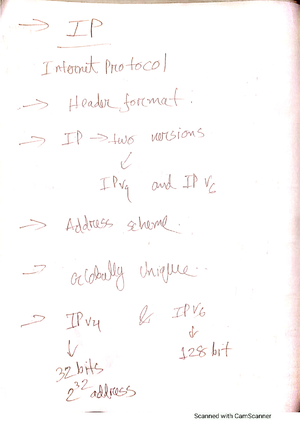 → IP
Internet Protocol
→ Header format.
→ IP → two versions
↓
IPv4 and IPv6
→ Address scheme.
→ Globally Unique.
→ IPv4 & IPv6
↓ ↓
32 bits 128 bit
2^32 address
Scanned with CamScanner